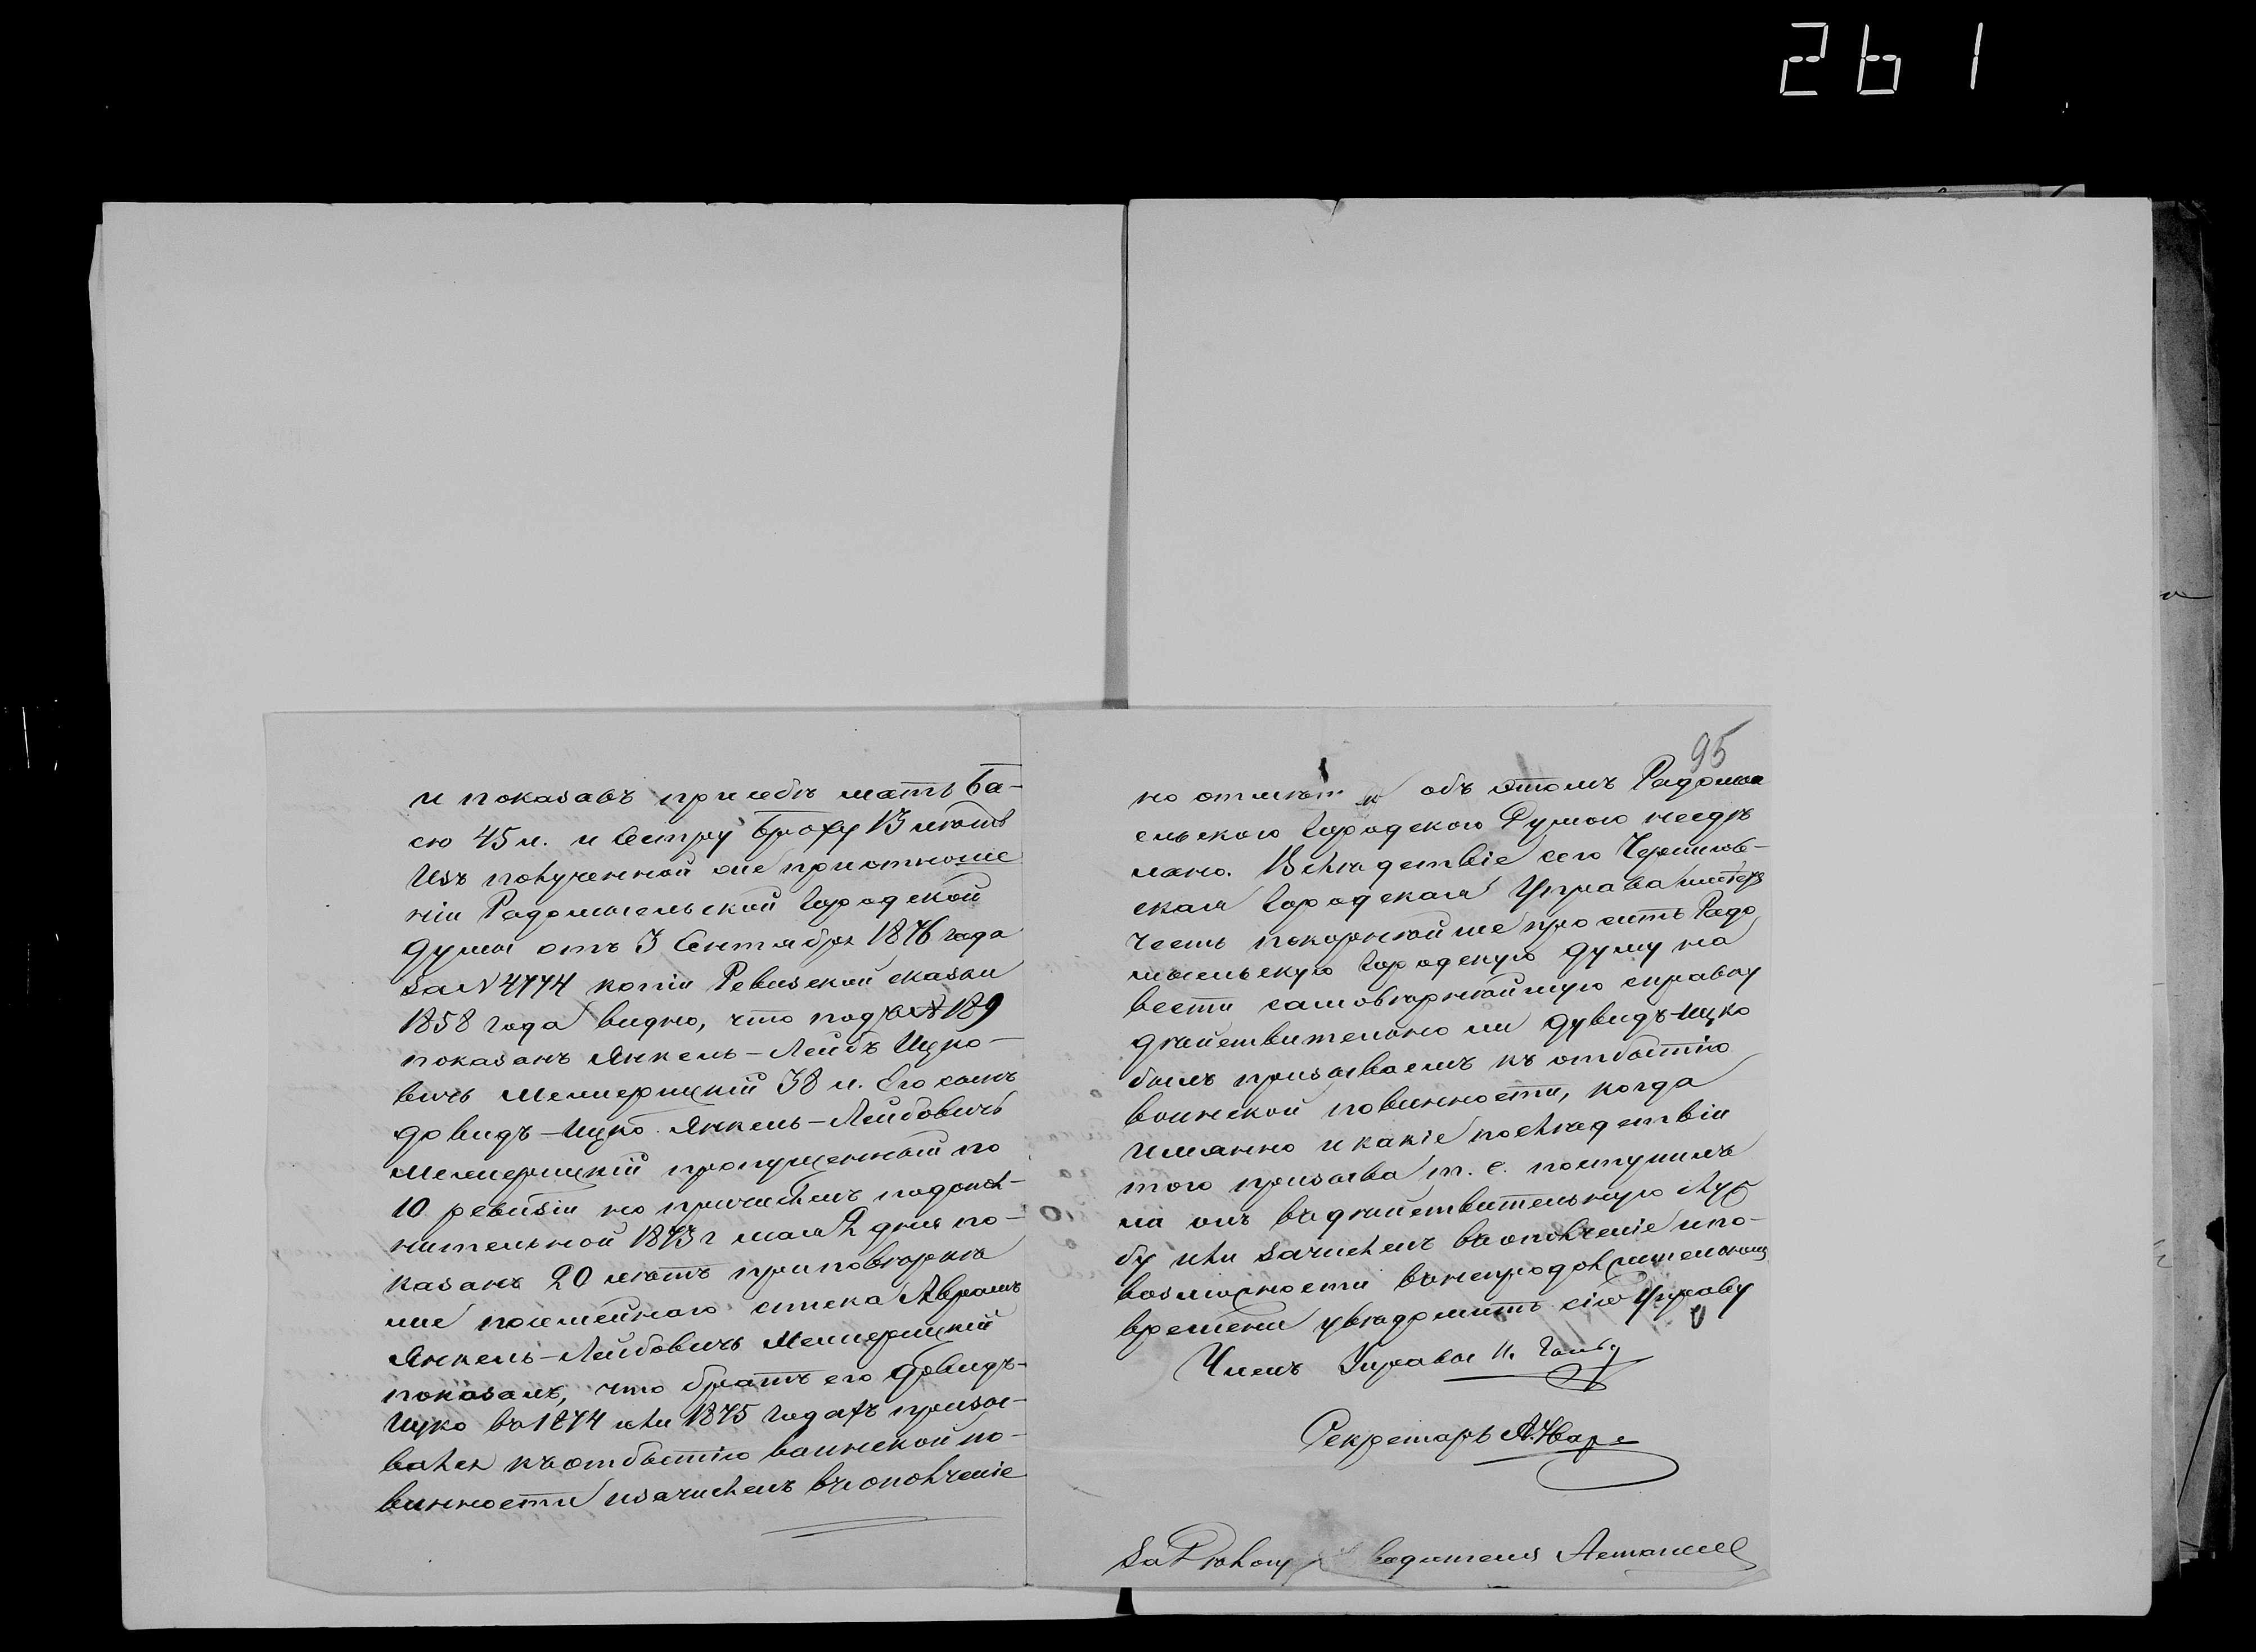 261
и показавъ при себѣ мать Ба-
сю 45 л. и Сестру Броху 13 лѣтъ
Изъ полученной оне при отноше
ніи Радомысльской Городской
думы отъ 3 Сентября 1876 года
за № 4774 копіи Ревизской сказки
1858 года видно, что подъ № 189
показанъ Янкель-Лейбъ Ицко-
вичъ Межерицкій 38 л. Его сынъ
Довидъ-Ицко Янкель-Лейбовичъ
Межерицкій пропущенный по
10 ревизіи но причисленъ по допол-
нительной 1873 г мая 2 дня по-
казанъ 20 лѣтъ при повѣрке
ме посемейнаго списка Аврамъ
Янкель-Лейбовичъ Межерицкій
показалъ, что братъ его Довидъ-
Ицко въ 1874 или 1875 годахъ призы-
вался къ отбытію воинской по-
винности и зачисленъ въ ополченіе
95
но отмѣт и объ этомъ Радомы
сльскою Городскою Думою не сдѣ
лано. Вслѣдствіе сего Чернигов-
ская Городская Управа имѣетъ
честь покорнѣйше просить Радо
мысльскую Городскую думу на
вести самовѣрнѣйшую справку
дѣйствительно ли Дувидъ-Ицко
былъ призываемъ къ отбытію
воинской повинности, когда
именно и какіе послѣдствіи
того призыва т. е. поступилъ
ли онъ въ дѣйствительную служ
бу или зачисленъ въ ополченіе и по-
возможности въ непродолжительномъ
времени увѣдомить сію Управу
Членъ Управы И.
Секретарь А.
За Дѣлопр водителя